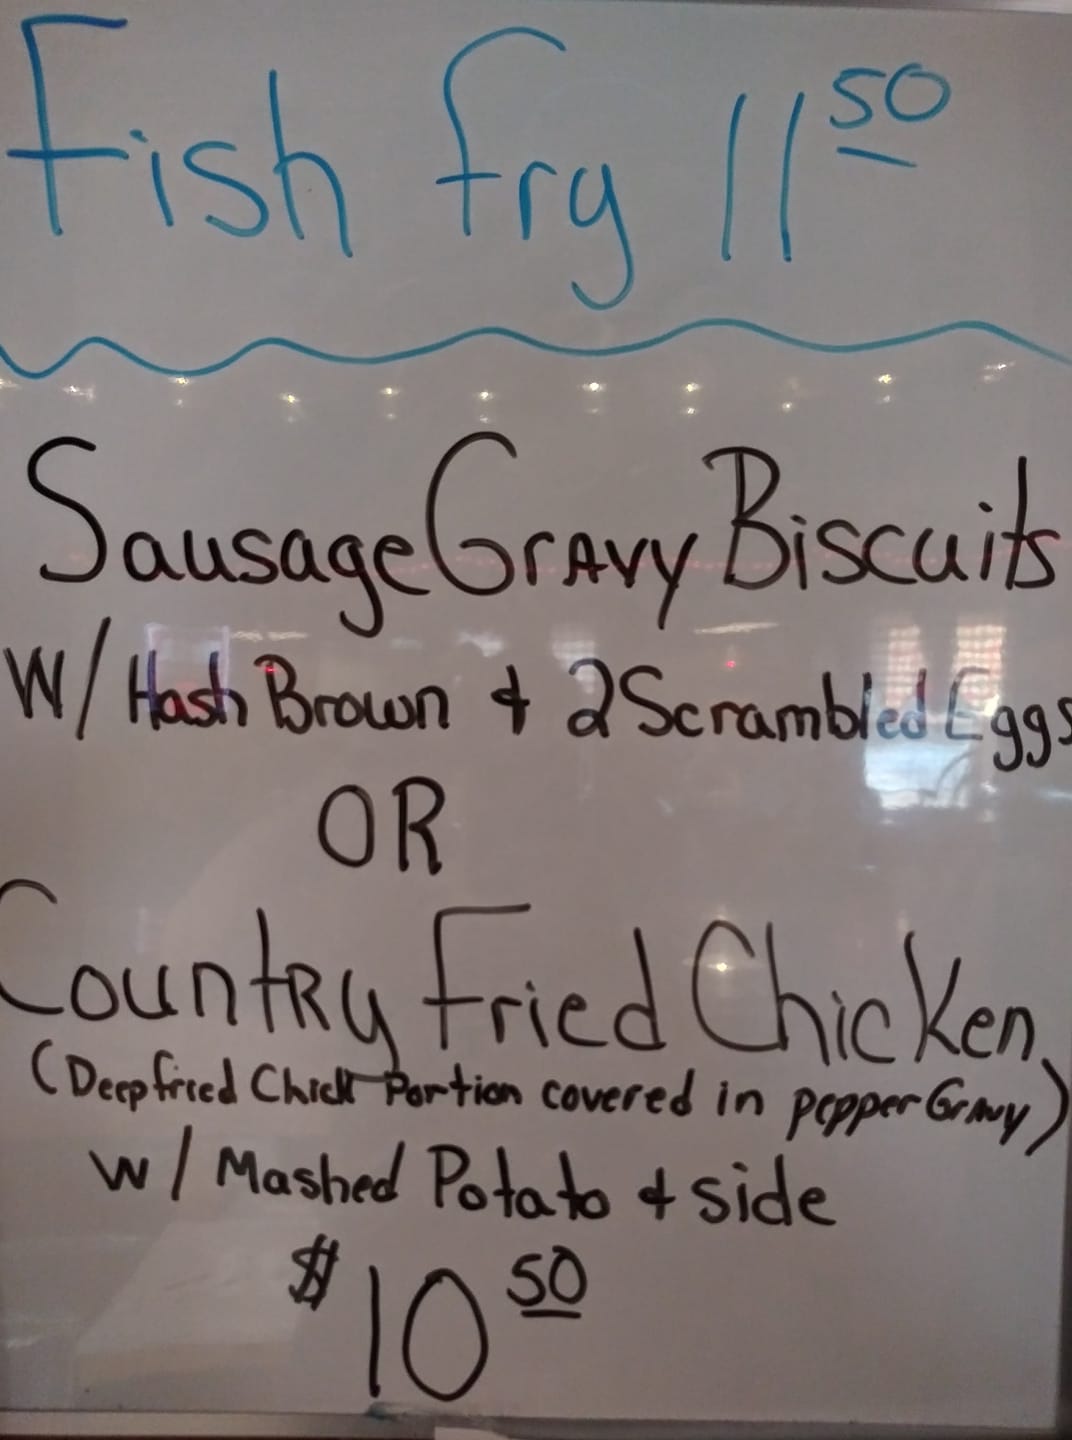 Fish fry 11 50
Sausage Gravy Biscuits
W/ Hash Brown & 2 Scrambled Eggs
OR
Country Fried Chicken
(Deep fried Chick Portion covered in pepper Gravy)
w/ Mashed Potato & side
$10 50